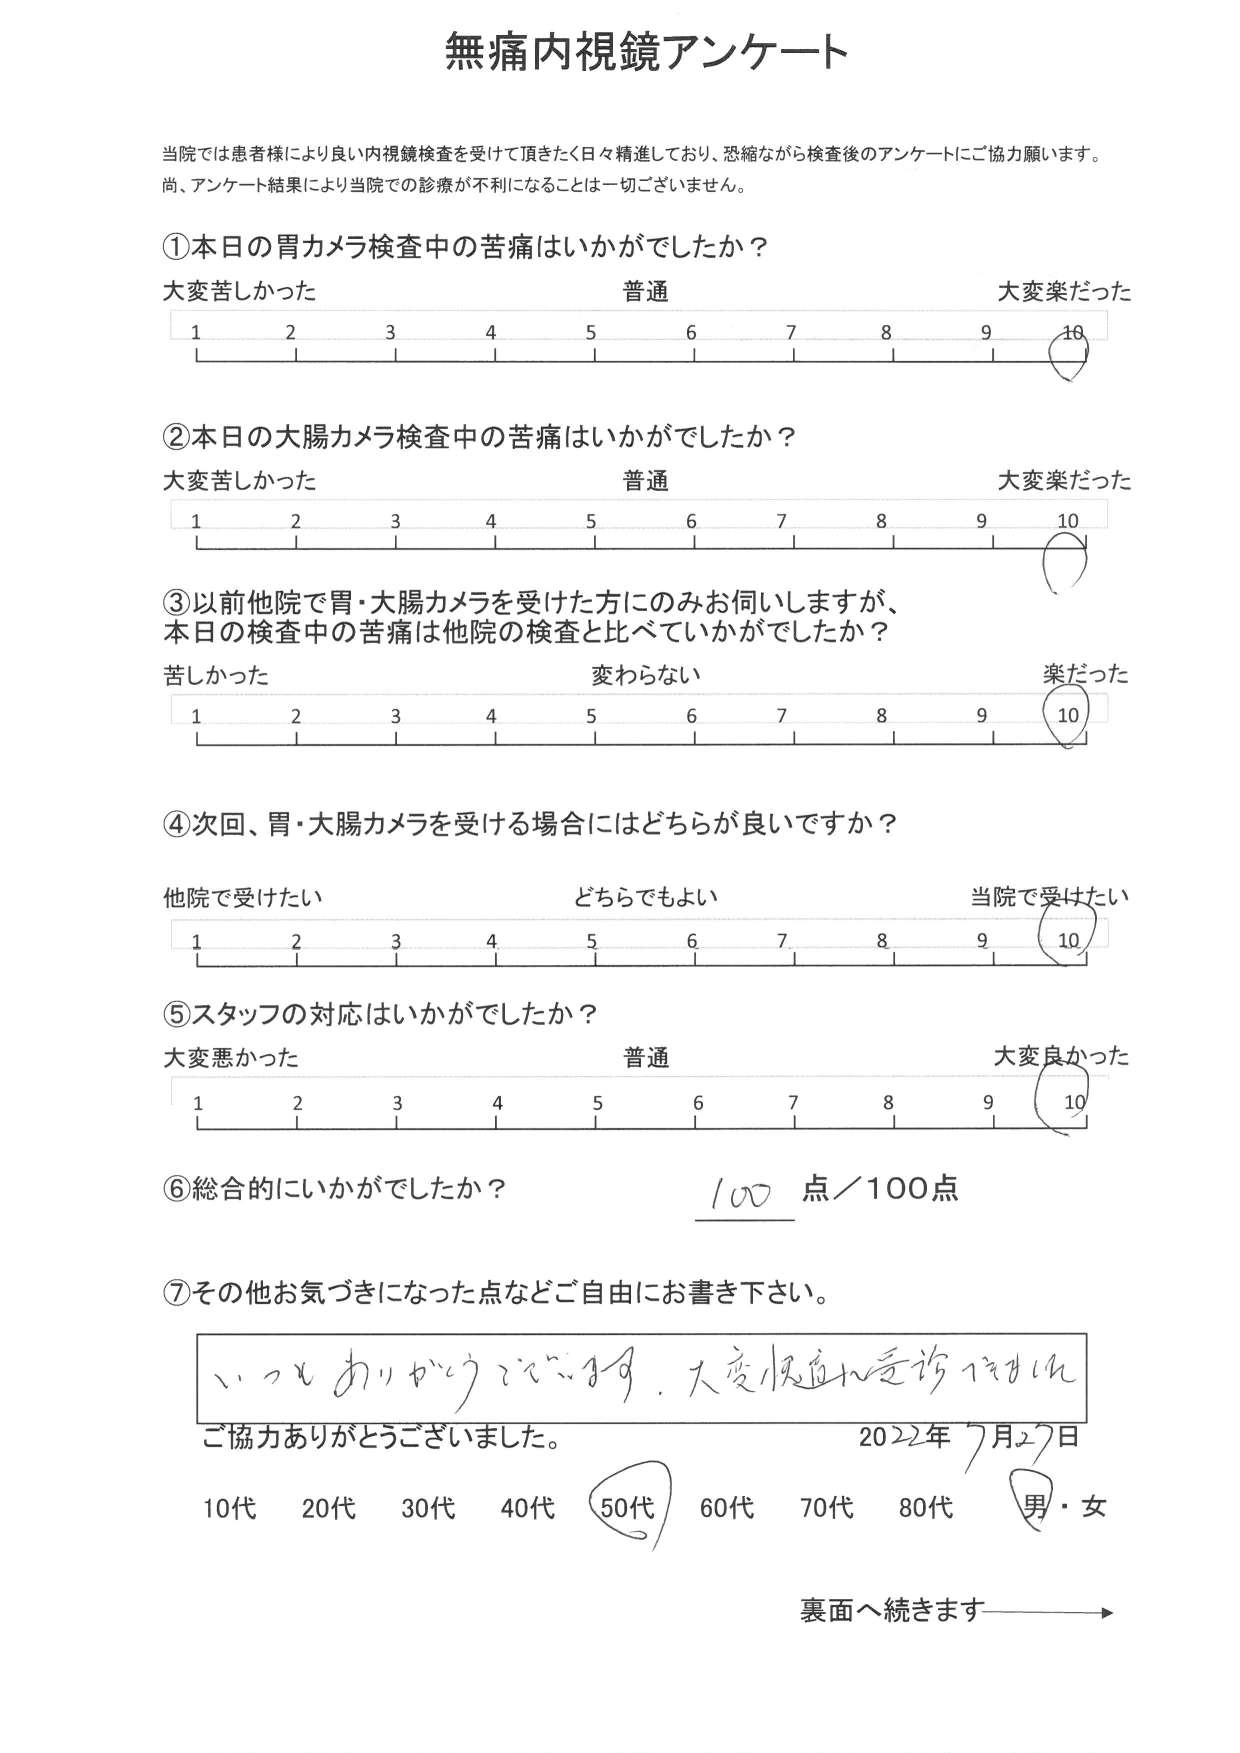 無痛内視鏡アンケート
当院では患者様により良い内視鏡検査を受けて頂きたく日々精進しており、恐縮ながら検査後のアンケートにご協力願います。
尚、アンケート結果により当院での診療が不利になることは一切ございません。
①本日の胃カメラ検査中の苦痛はいかがでしたか？
大変苦しかった 普通 大変楽だった
1 2 3 4 5 6 7 8 9 10
②本日の大腸カメラ検査中の苦痛はいかがでしたか？
大変苦しかった 普通 大変楽だった
1 2 3 4 5 6 7 8 9 10
③以前他院で胃・大腸カメラを受けた方にのみお伺いしますが、
本日の検査中の苦痛は他院の検査と比べていかがでしたか？
苦しかった 変わらない 楽だった
1 2 3 4 5 6 7 8 9 10
④次回、胃・大腸カメラを受ける場合にはどちらが良いですか？
他院で受けたい どちらでもよい 当院で受けたい
1 2 3 4 5 6 7 8 9 10
⑤スタッフの対応はいかがでしたか？
大変悪かった 普通 大変良かった
1 2 3 4 5 6 7 8 9 10
⑥総合的にいかがでしたか？ 100 点／100点
⑦その他お気づきになった点などご自由にお書き下さい。
いつもありがとうございます. 大変快適に受診できました
ご協力ありがとうございました。 2022年 7月27日
10代 20代 30代 40代 50代 60代 70代 80代 男・女
裏面へ続きます